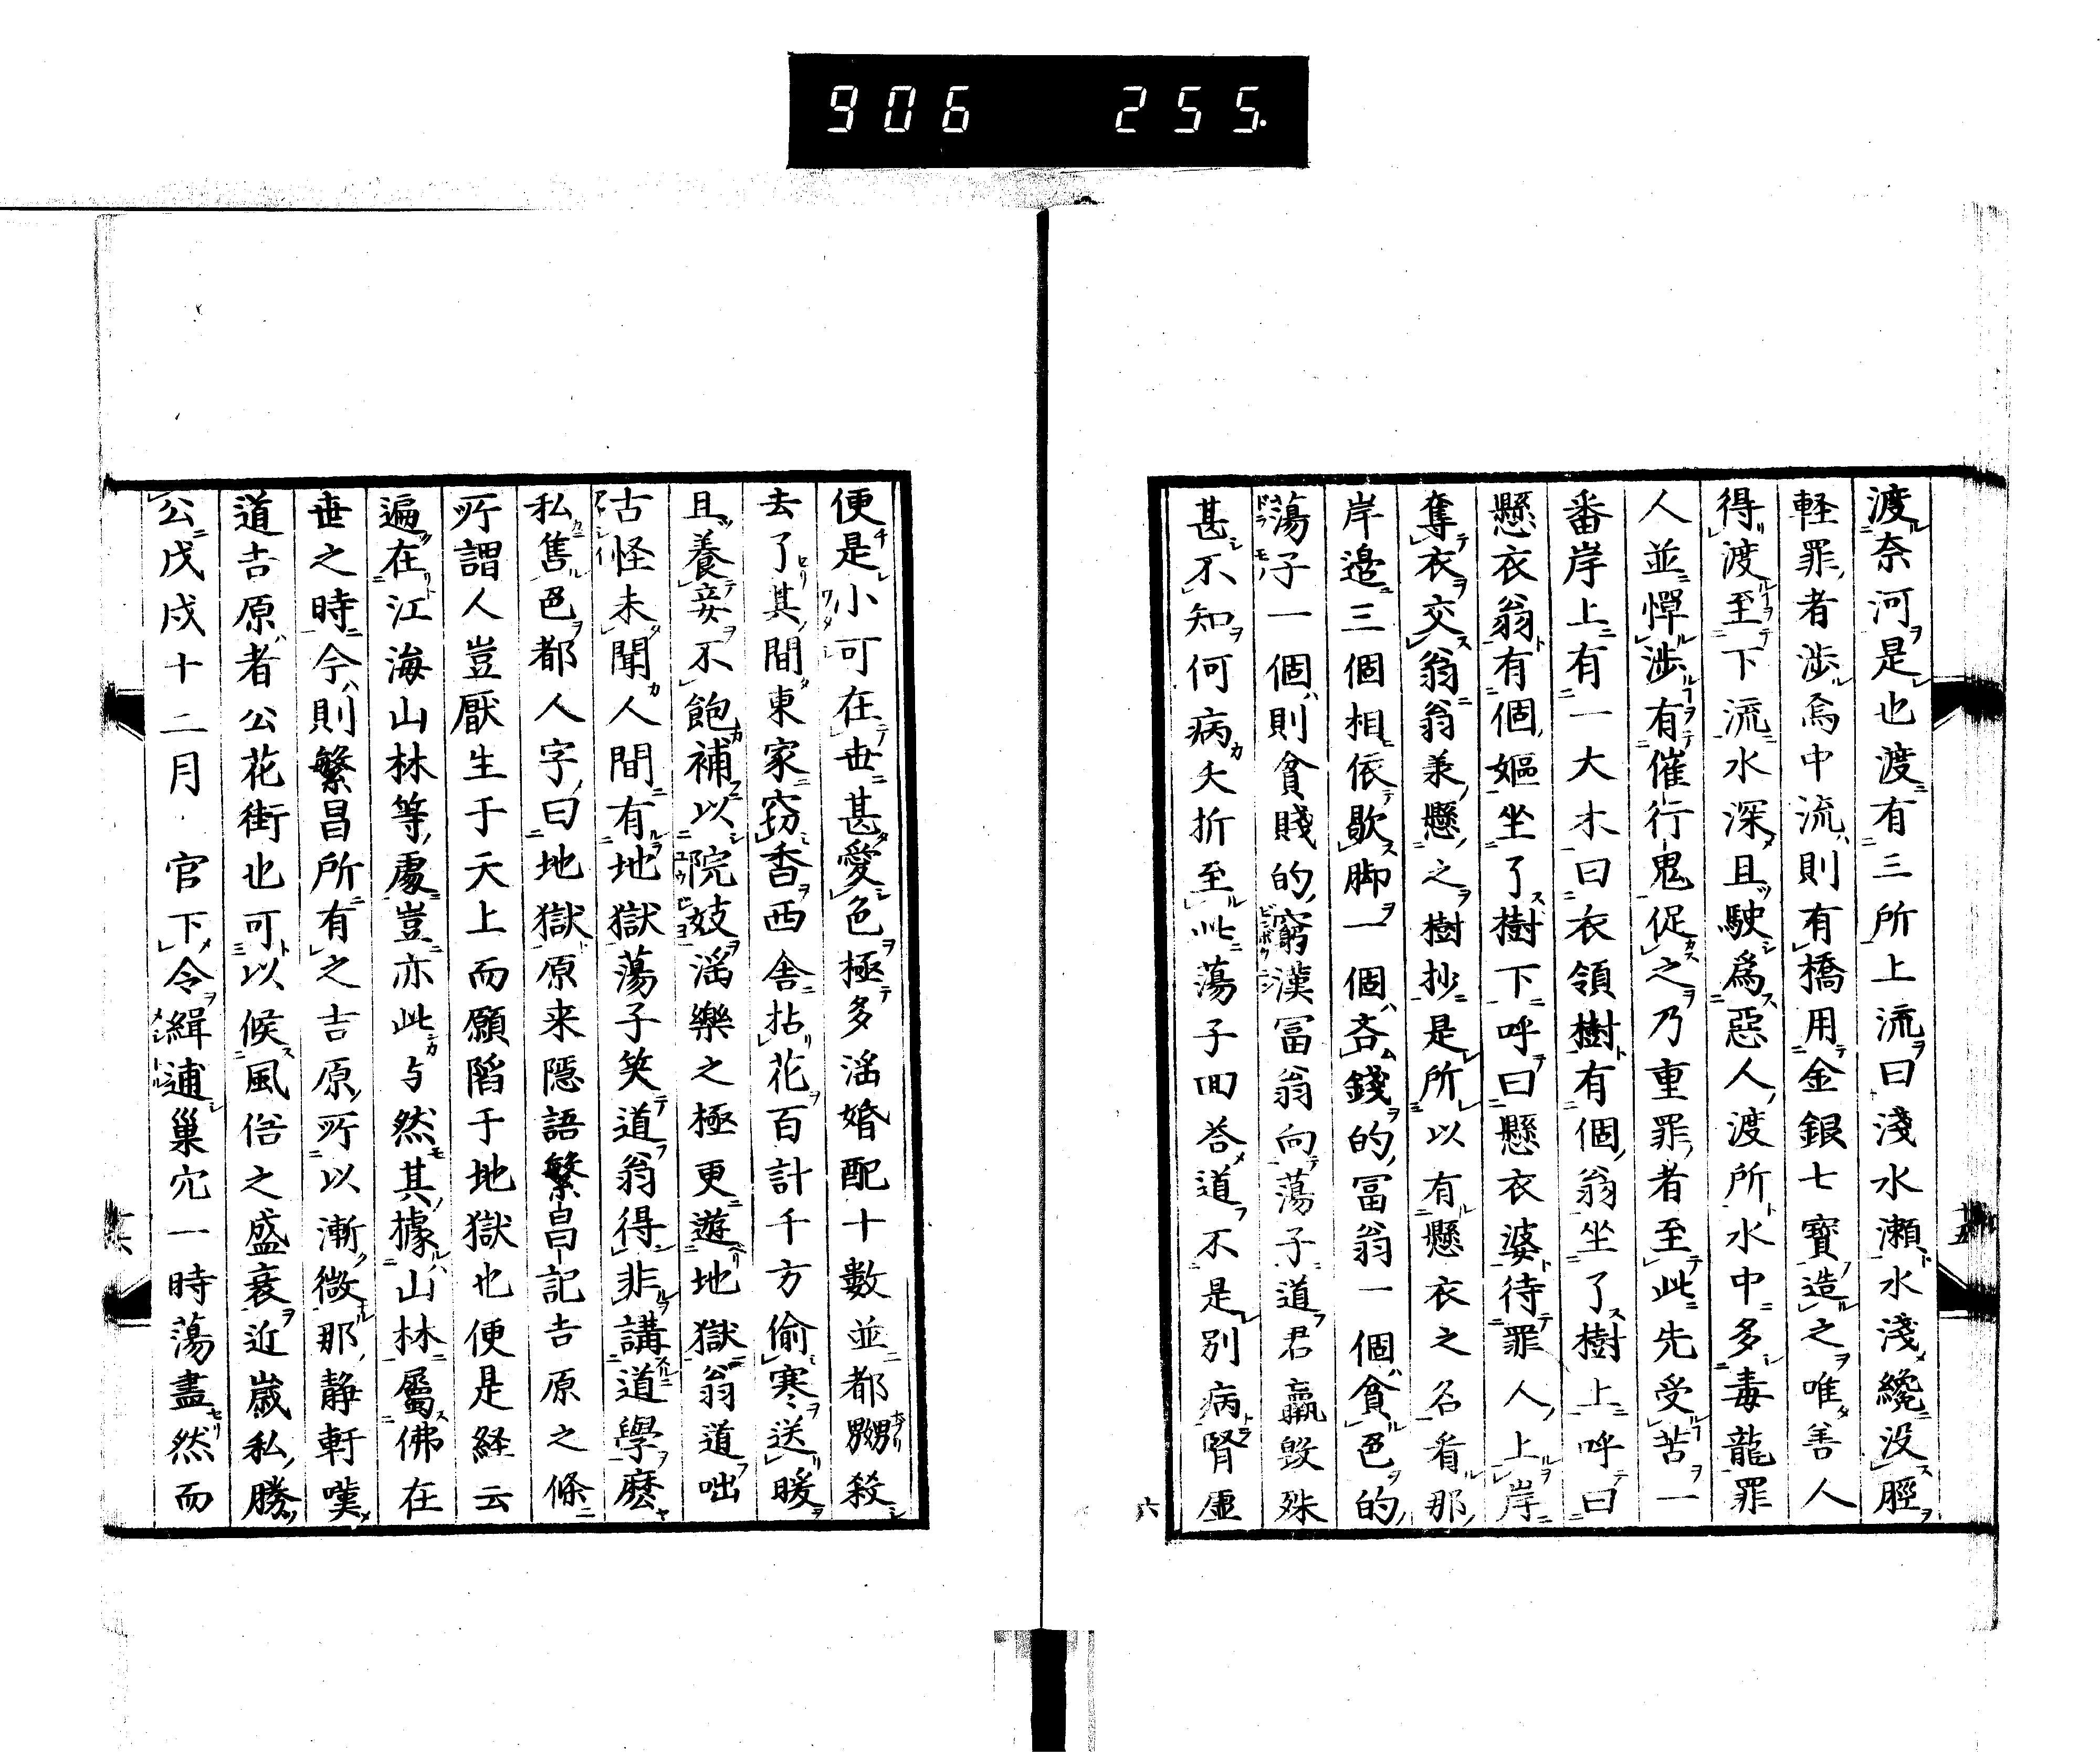 906 255.
渡奈河是也渡有三所上流曰淺水瀬水淺纔没脛
軽罪者渉焉中流則有橋用金銀七寶造之唯善人
得渡至下流水深且駛為惡人渡所水中多毒龍罪
人並憚渉有催行鬼促之乃重罪者至此先受苦一
番岸上有一大木曰衣領樹有個翁坐了樹上呼曰
懸衣翁有個嫗坐了樹下呼曰懸衣婆待罪人上岸
奪衣交翁翁承懸之樹抄是所以有懸衣之名看那
岸邉三個相依歇脚一個吝錢的冨翁一個貪色的
蕩子一個則貧賤的窮漢冨翁向蕩子道君羸毀殊
甚不知何病夭折至此蕩子回荅道不是別病腎虚
五
六
便是小可在世甚愛色極多滛婚配十數並都嬲殺
去了其間東家窃香西舎拈花百計千方偷寒送暖
且養妾不飽補以院妓滛樂之極更遊地獄翁道咄
古怪未聞人間有地獄蕩子笑道翁得非講道學麽
私售色都人字曰地獄原来隠語繁昌記吉原之條
所謂人豈厭生于天上而願陷于地獄也便是経云
遍在江海山林等處豈亦此与然其據山林屬佛在
世之時今則繁昌所有之吉原所以漸微那静軒嘆
道吉原者公花街也可以候風俗之盛衰近歳私勝
公戊戌十二月 官下令緝逋巢穴一時蕩盡然而
六